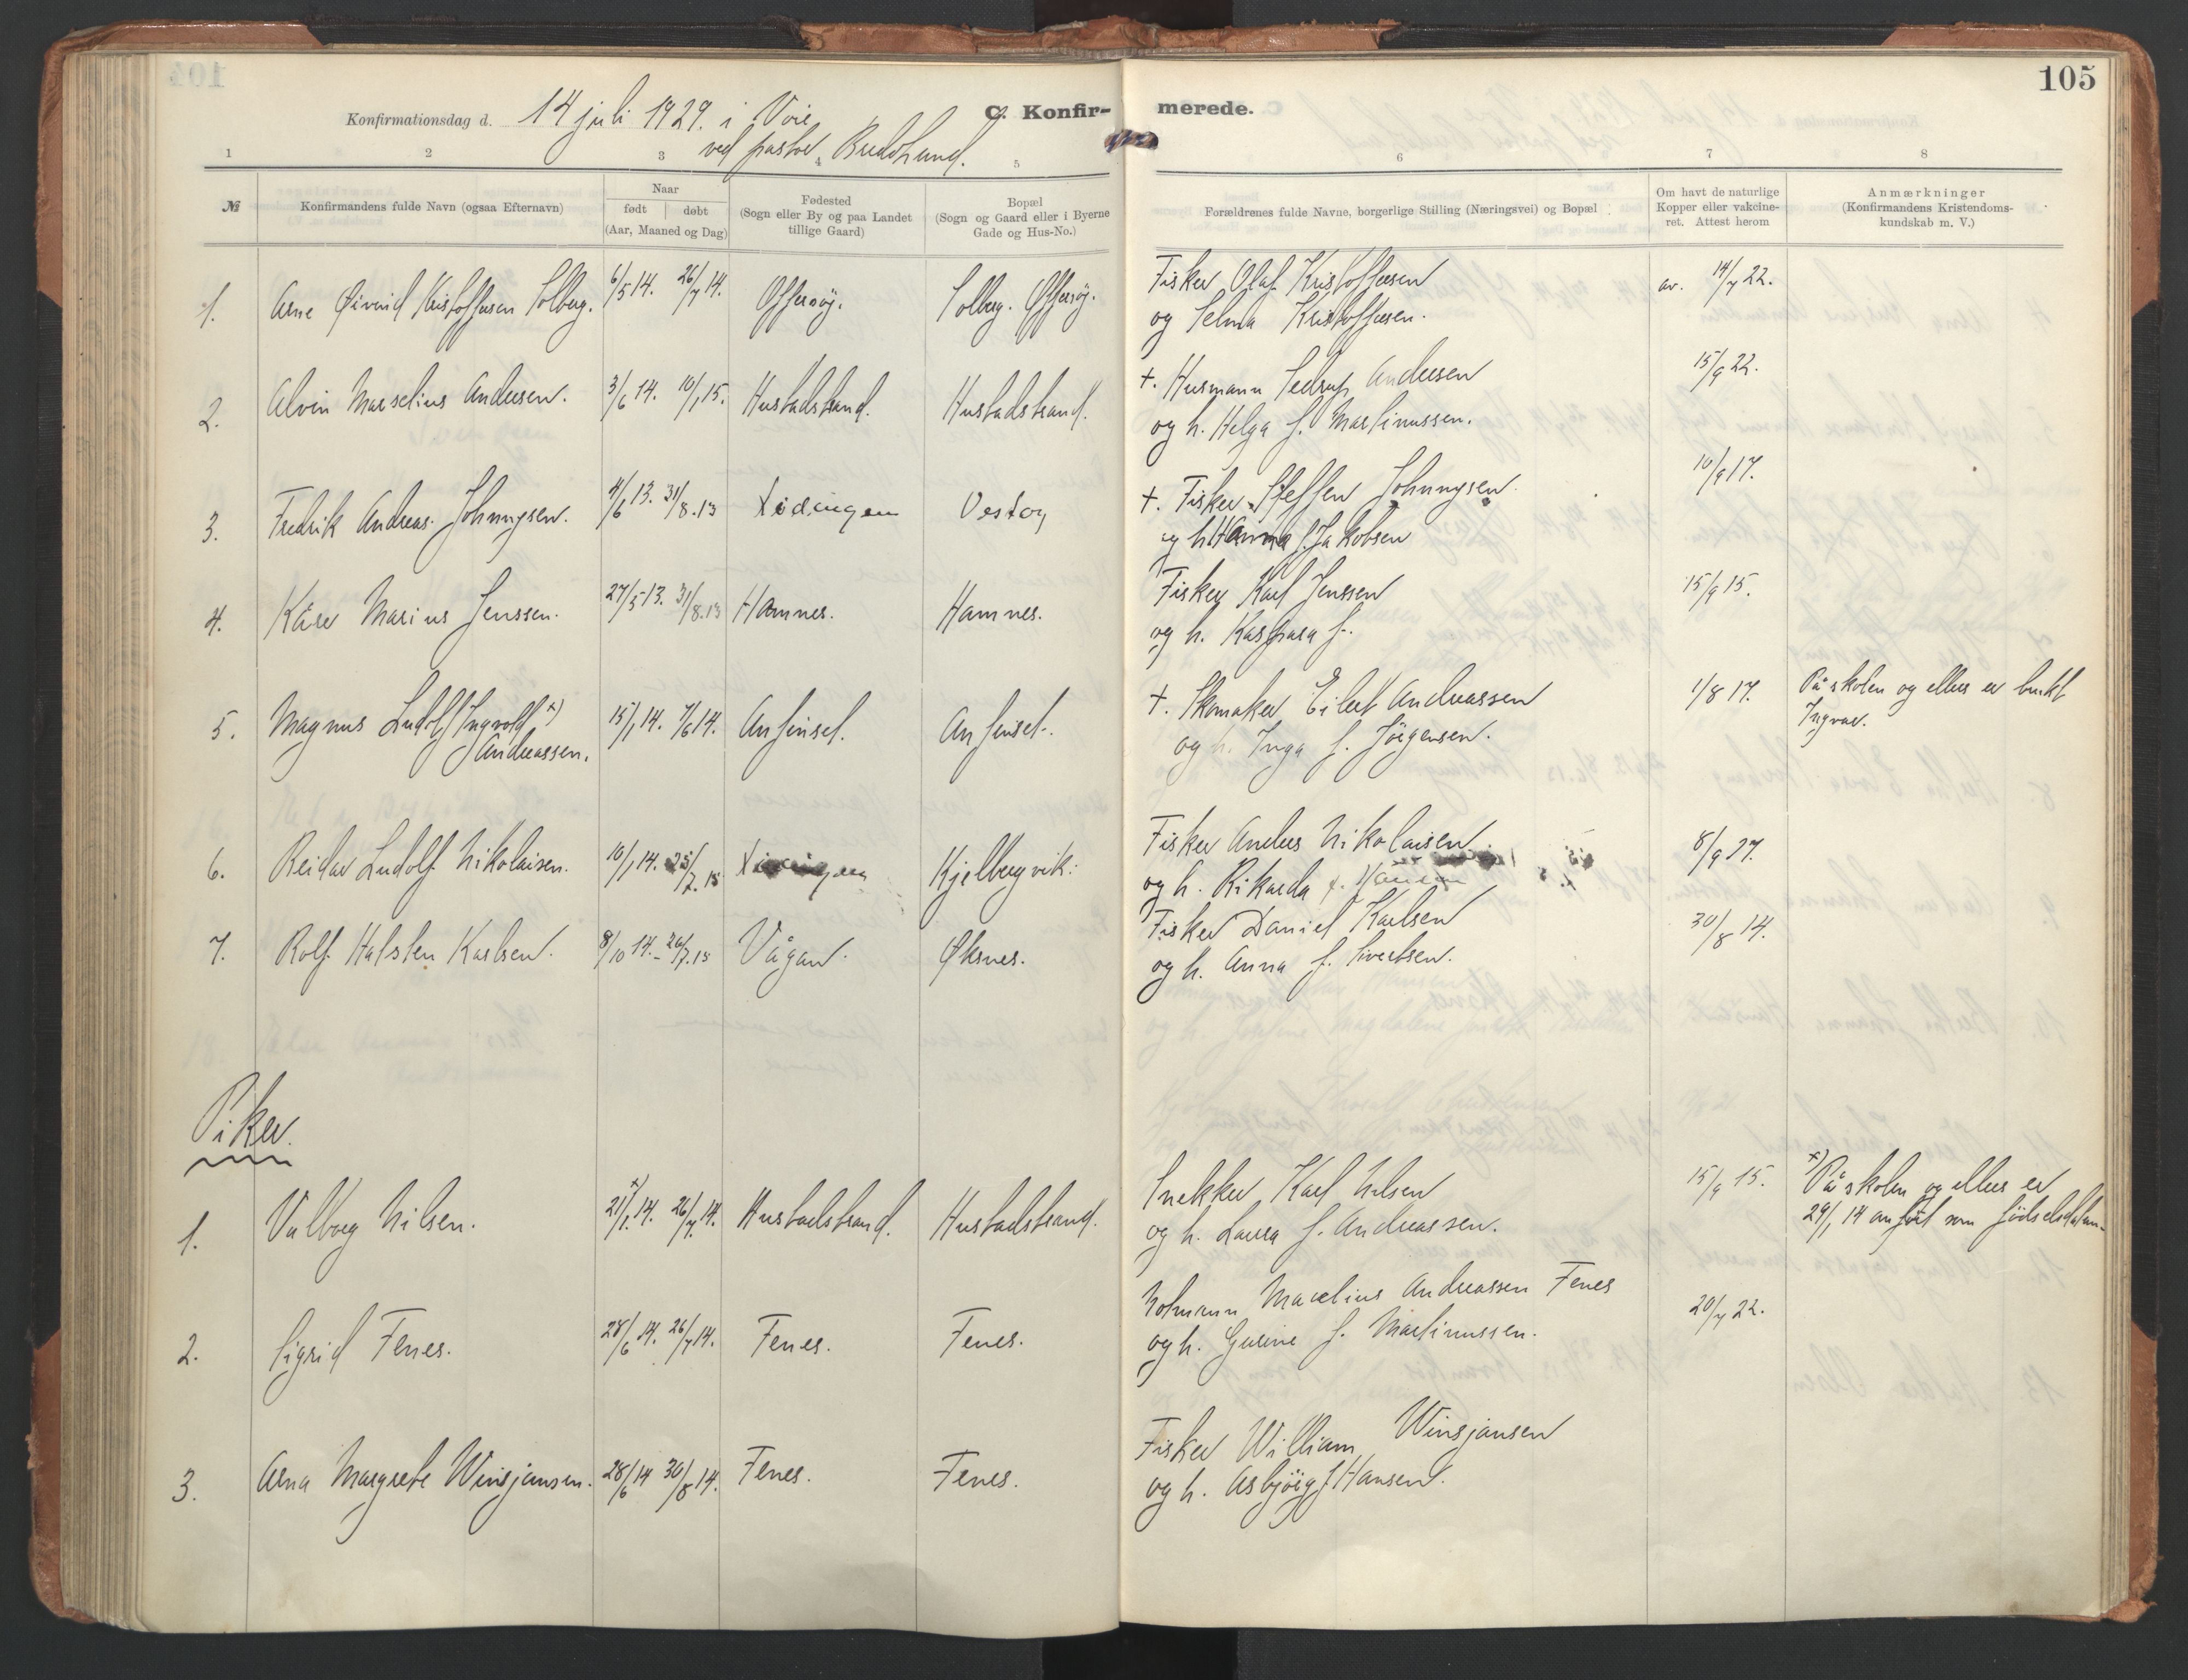 105
Konfirmationsdag d. 14 juli 1929. i Voie
ved pastor
C. Konfir- merede.
1 2 3 4 5 6 7 8
№
Konfirmandens fulde Navn (ogsaa Efternavn)
Naar
født | døbt
(Aar, Maaned og Dag)
Fødested
(Sogn eller By og paa Landet
tillige Gaard)
Bopæl
(Sogn og Gaard eller i Byerne
Gade og Hus-No.)
Forældrenes fulde Navne, borgerlige Stilling (Næringsvei) og Bopæl
Om havt de naturlige
Kopper eller vakcine-
ret. Attest herom
Anmærkninger
(Konfirmandens Kristendoms-
kundskab m. V.)
1. Arne Øivind Kristoffersen Solberg. 6/5 14. 26/7 14. Offersøy. Solberg. Offersøy. Fisker Olaf Kristoffersen av. 14/7 22.
og Selma Kristoffersen.
2. Alvin Marselius Andersen. 3/6 14. 10/1 15. Hustadstrand. Hustadstrand. +. Husmann Sedrup Andersen 15/9 22.
og h. Helga f. Martinussen.
3. Fredrik Andreas Johnnysen. 4/6 13. 31/8.13 Lødingen Vestøy +. Fisker Steffen Johnnysen. 10/9 17.
og h Hanna f. Jakobsen
4. Kåre Marius Jenssen. 27/5 13. 31/8.13 Hamnes. Hamnes. Fisker Karl Jenssen 15/9 15.
og h. Kaspara f.
5. Magnus Ludolf Ingvold x) 15/1 14. 7/6 14. Anfinset. Anfinset. +. Skomaker Eilert Andreassen 1/8 17. På skolen og ellers er brukt
Andreassen. og h. Inga f. Jørgensen. Ingvar.
6. Reidar Ludolf Nikolaisen. 10/1 14. 25/7.15 Kjelbergvik. Fisker Anders Nikolaisen. 8/9 27.
og h. Rikarda f. Hansen
7. Rolf Halsten Karlsen. 8/10 14. - 26/7.15 Vågan. Øksnes. Fisker Daniel Karlsen 30/8 14.
og h. Anna f. Sivertsen.
Piker.
1. Valborg Nilsen. 21/1 x) 14. 26/7 14. Hustadstrand. Hustadstrand. Snekker Karl Nilsen 15/9 15. x) På skolen og ellers er
og h. Laura f. Andreassen. 29/1 14 anført som fødselsdatum.
2. Sigrid Fenes. 28/6 14. 26/7 14. Fenes. Fenes. Notmann Marelius Andreassen Fenes 20/7 22.
og h. Gurine f. Martinussen.
3. Arna Margrete Winsjansen. 28/6 14 30/8 14. Fenes. Fenes. Fisker William Winsjansen
og h. Asbjørg f Hansen.